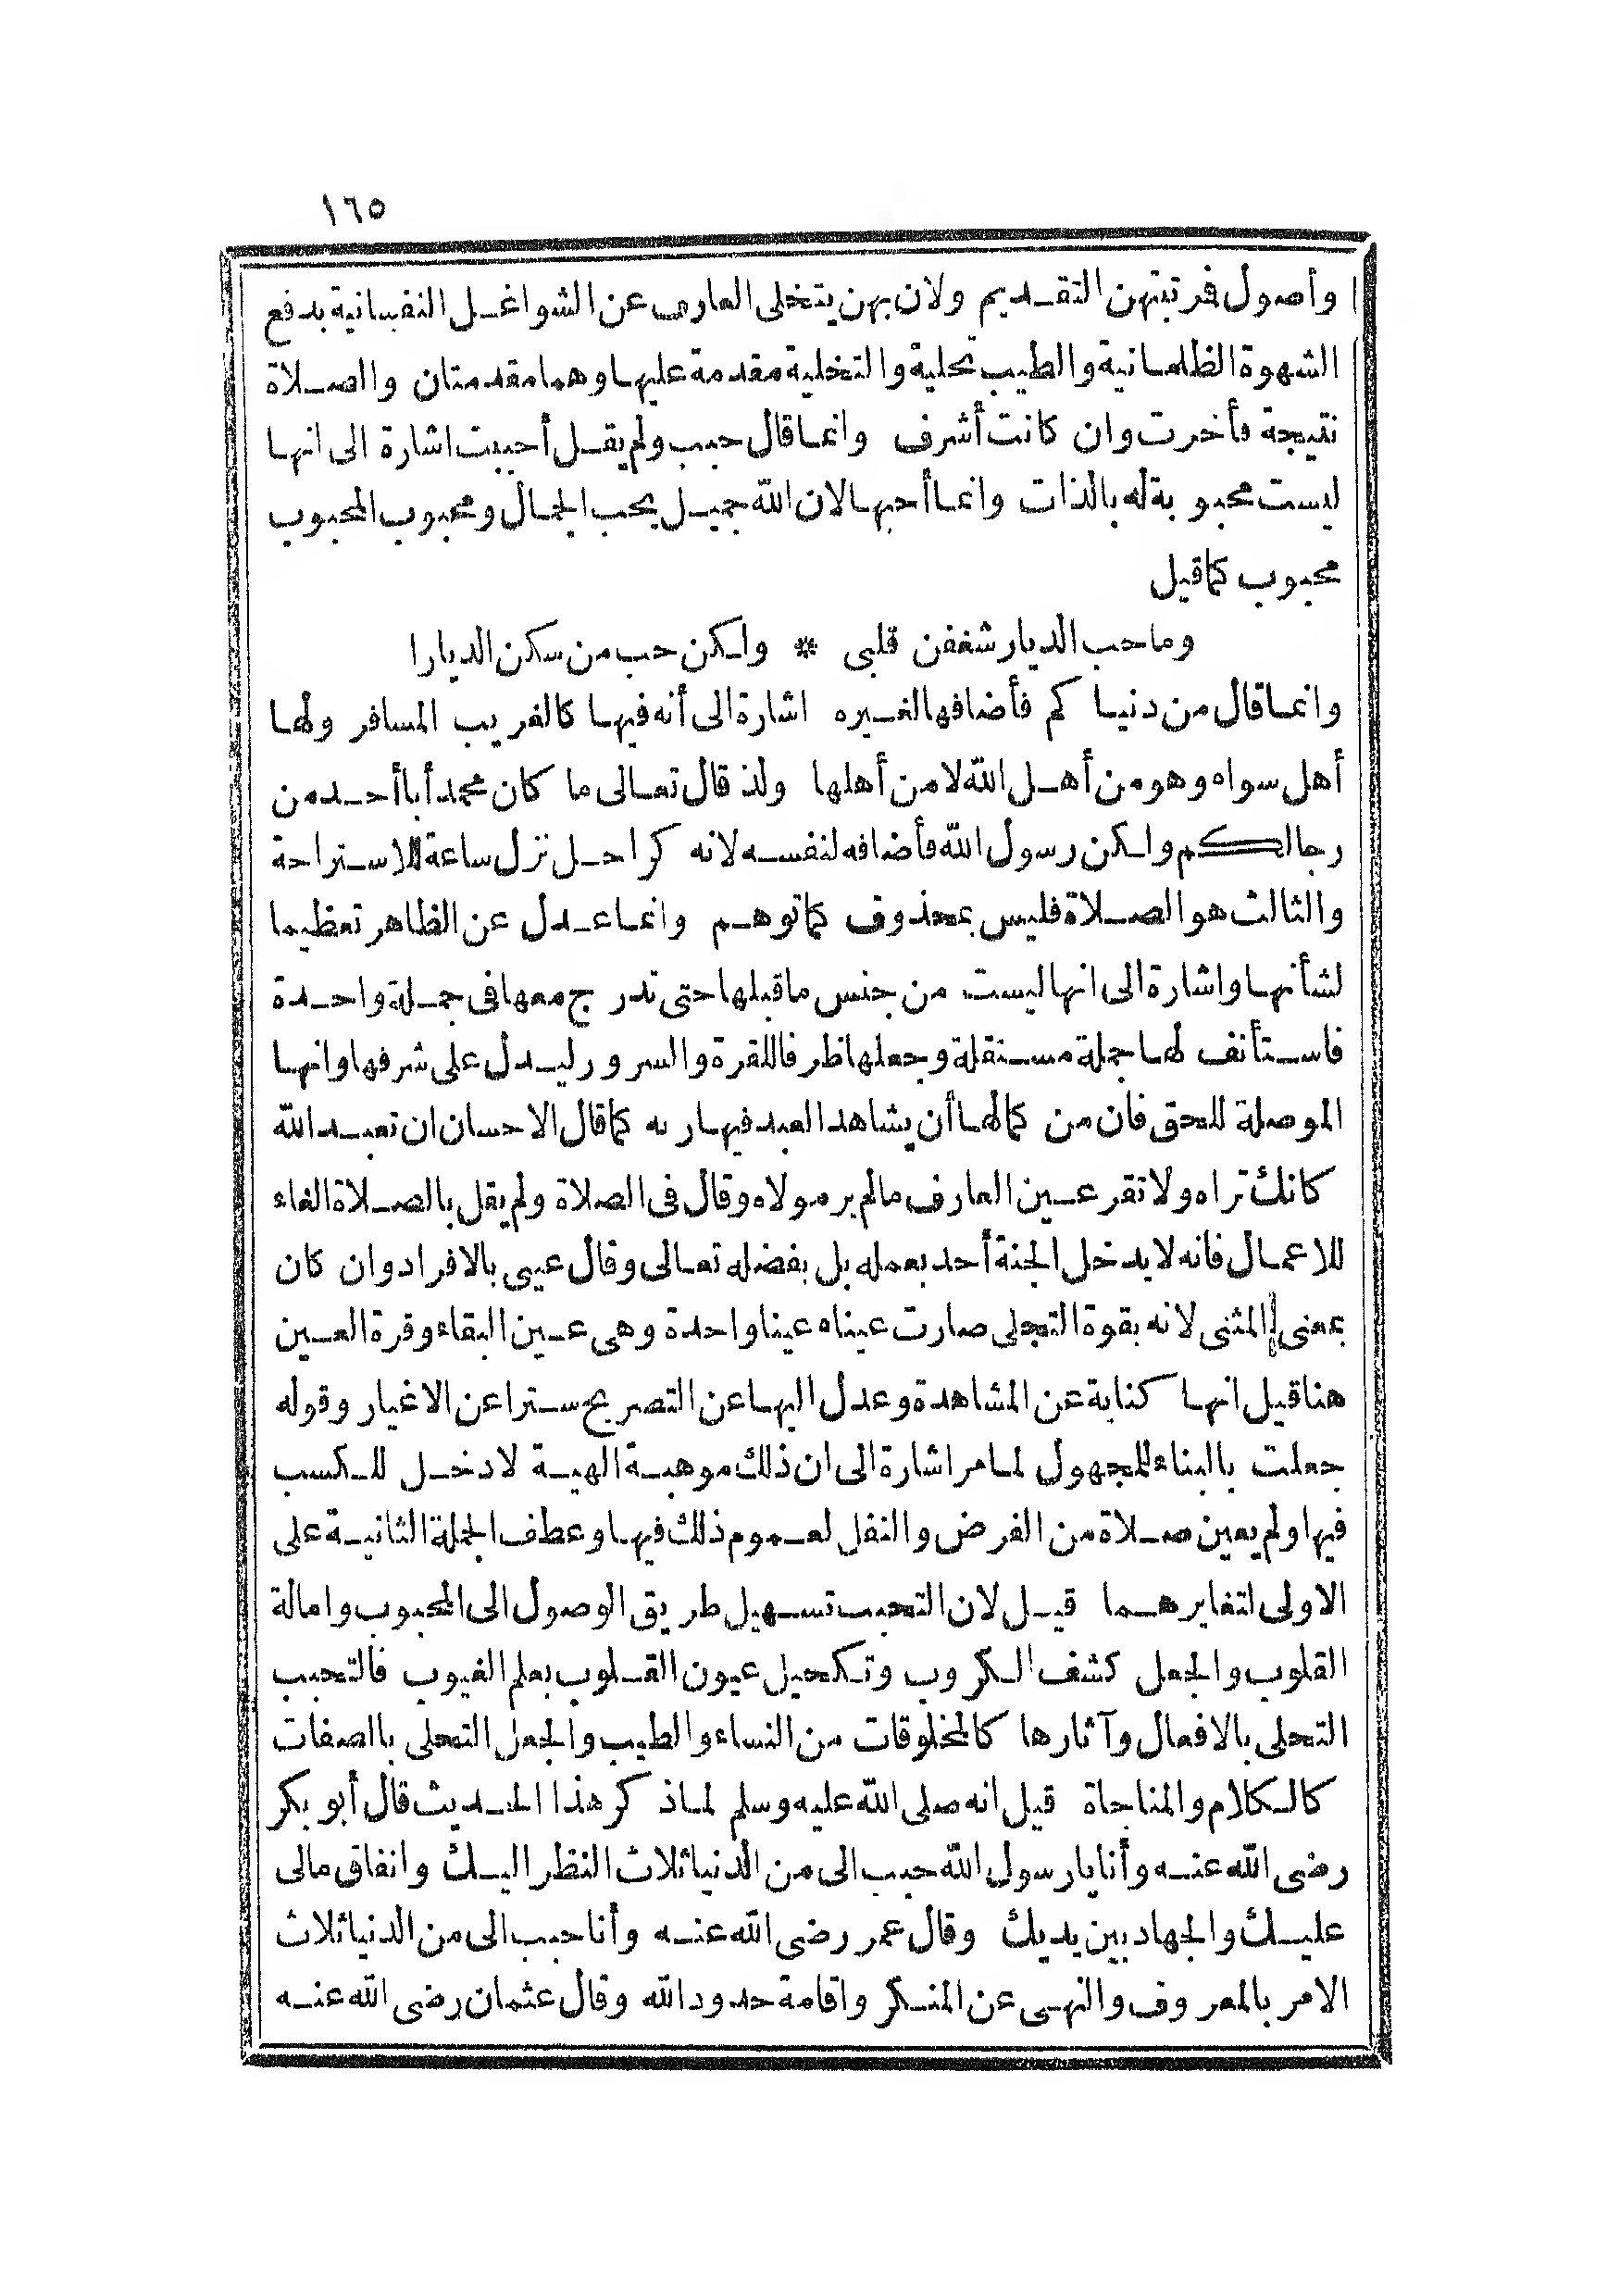 ١٦٥
وأصول فرتبتهن التقديم ولان بهن يتخلى العارى عن الشواغل النفسانية بدفع
الشهوة الظلمانية والطيب تحلية والتخلية مقدمة عليها وهما مقدمتان والصلاة
نتيجة فأخرت وان كانت أشرف وانما قال حبب ولم يقل أحببت اشارة الى انها
ليست محبوبة له بالذات وانما أحبها لان الله جميل يحب الجمال ومحبوب المحبوب
محبوب كما قيل
وما حب الديار شغفن قلبى * ولكن حب من سكن الديارا
وانما قال من دنياكم فأضافها لغيره اشارة الى أنه فيها كالغريب المسافر ولها
أهل سواه وهو من أهل الله لا من أهلها ولذ قال تعالى ما كان محمد أبا أحد من
رجالكم ولكن رسول الله فأضافه لنفسه لانه كراحل نزل ساعة للاستراحة
والثالث هو الصلاة فليس بمحذوف كما توهم وانما عدل عن الظاهر تعظيما
لشأنها واشارة الى انها ليست من جنس ما قبلها حتى تدرج معها فى جملة واحدة
فاستأنف لها جملة مستقلة وجعلها ظرفا للقرة والسرور ليدل على شرفها وانها
الموصلة للحق فان من كمالها أن يشاهد العبد فيها ربه كما قال الاحسان ان تعبد الله
كانك تراه ولا تقر عين العارف ما لم ير مولاه وقال فى الصلاة ولم يقل بالصلاة الغاء
للاعمال فانه لا يدخل الجنة أحد بعمله بل بفضله تعالى وقال عينى بالافراد وان كان
بمعنى المثنى لانه بقوة التجلى صارت عيناه عينا واحدة وهى عين البقاء وقرة العين
هنا قيل انها كناية عن المشاهدة وعدل اليها عن التصريح سترا عن الاغيار وقوله
جعلت بالبناء للمجهول لما مر اشارة الى ان ذلك موهبة الهية لا دخل للكسب
فيها ولم يعين صلاة من الفرض والنفل لعموم ذلك فيها وعطف الجملة الثانية على
الاولى لتغايرهما قيل لان التحبب تسهيل طريق الوصول الى المحبوب وامالة
القلوب والجعل كشف الكروب وتكحيل عيون القلوب بعلم الغيوب فالتحبب
التحلى بالافعال وآثارها كالمخلوقات من النساء والطيب والجعل التجلى بالصفات
كالكلام والمناجاة قيل انه صلى الله عليه وسلم لما ذكر هذا الحديث قال أبو بكر
رضى الله عنه وأنا يا رسول الله حبب الى من الدنيا ثلاث النظر اليك وانفاق مالى
عليك والجهاد بين يديك وقال عمر رضى الله عنه وأنا حبب الى من الدنيا ثلاث
الامر بالمعروف والنهى عن المنكر واقامة حدود الله وقال عثمان رضى الله عنه